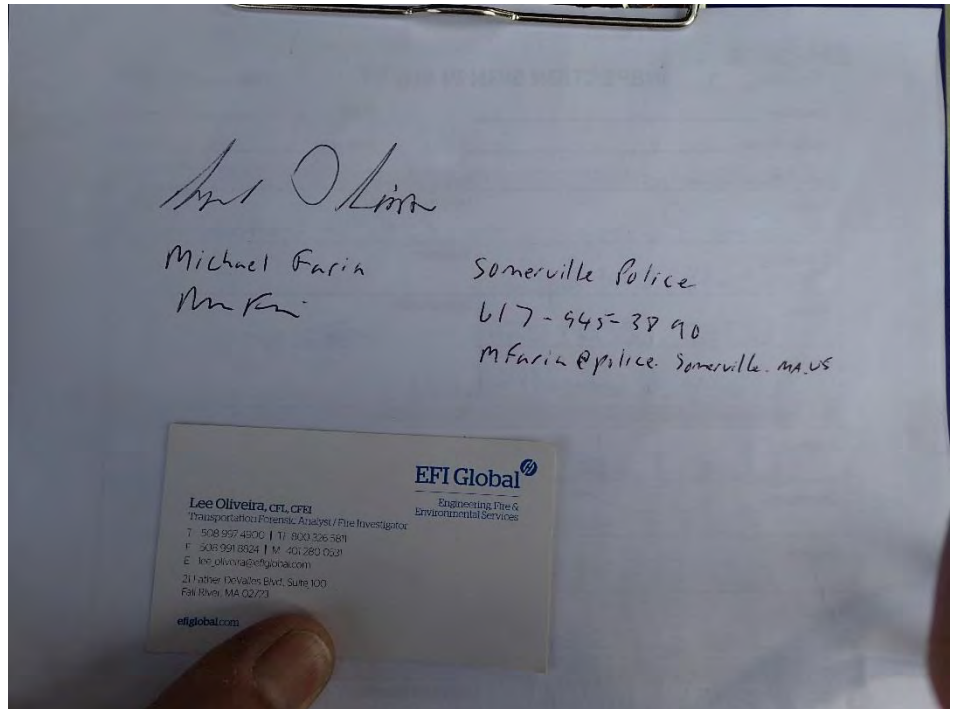 Michael Faria
Somerville Police
617-945-3890
MFaria@police.Somerville.MA.US
EFI Global
Engineering, Fire &
Environmental Services
Lee Oliveira, CFI, CFEI
Transportation Forensic Analyst / Fire Investigator
T 508 997 4900 | T/ 800 326 5811
F 508 991 8824 | M 401 280 0531
E lee_oliveira@efiglobal.com
21 Father DeValles Blvd, Suite 100
Fall River, MA 02723
efiglobal.com